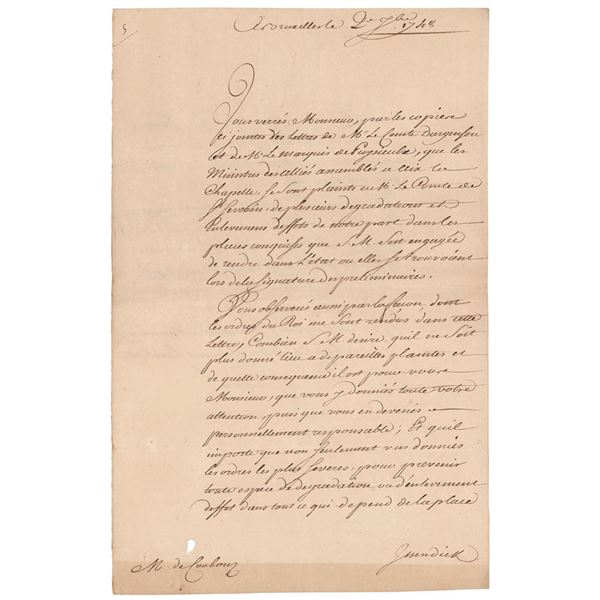 5
A Bruxelles le 2e 7bre 1748
Vous verrés, Monsieur, par les copies
ci jointes des Lettres de Mr. Le Comte Dargenson
et de Mr. Le Marquis de Puysieulx, que les
Ministres des alliés assemblés a Aix la
Chapelle, se sont plaints a Mr. Le Comte de
St. Severin, de plusieurs degradations et
Enlevemens d'effets de notre part dans les
places conquises que S. M. s'est engagée
de rendre dans l'état ou elles se trouvoient
lors de la Signature des preliminaires.
Vous observerés aussi par la façon dont
les ordres du Roi me sont rendus dans cette
Lettre, Combien S. M. desire qu'il ne soit
plus donné lieu a de pareilles plaintes et
de quelle consequence il est pour vous
Monsieur, que vous y donniés toute votre
attention, puis que vous en devenés
personnellement responsable; Et qu'il
importe que non seulement vous donniés
les ordres les plus severes, pour prevenir
toute espece de degradation ou d'enlevement
d'effet dans tout ce qui depend de la place
M. de Courbouz